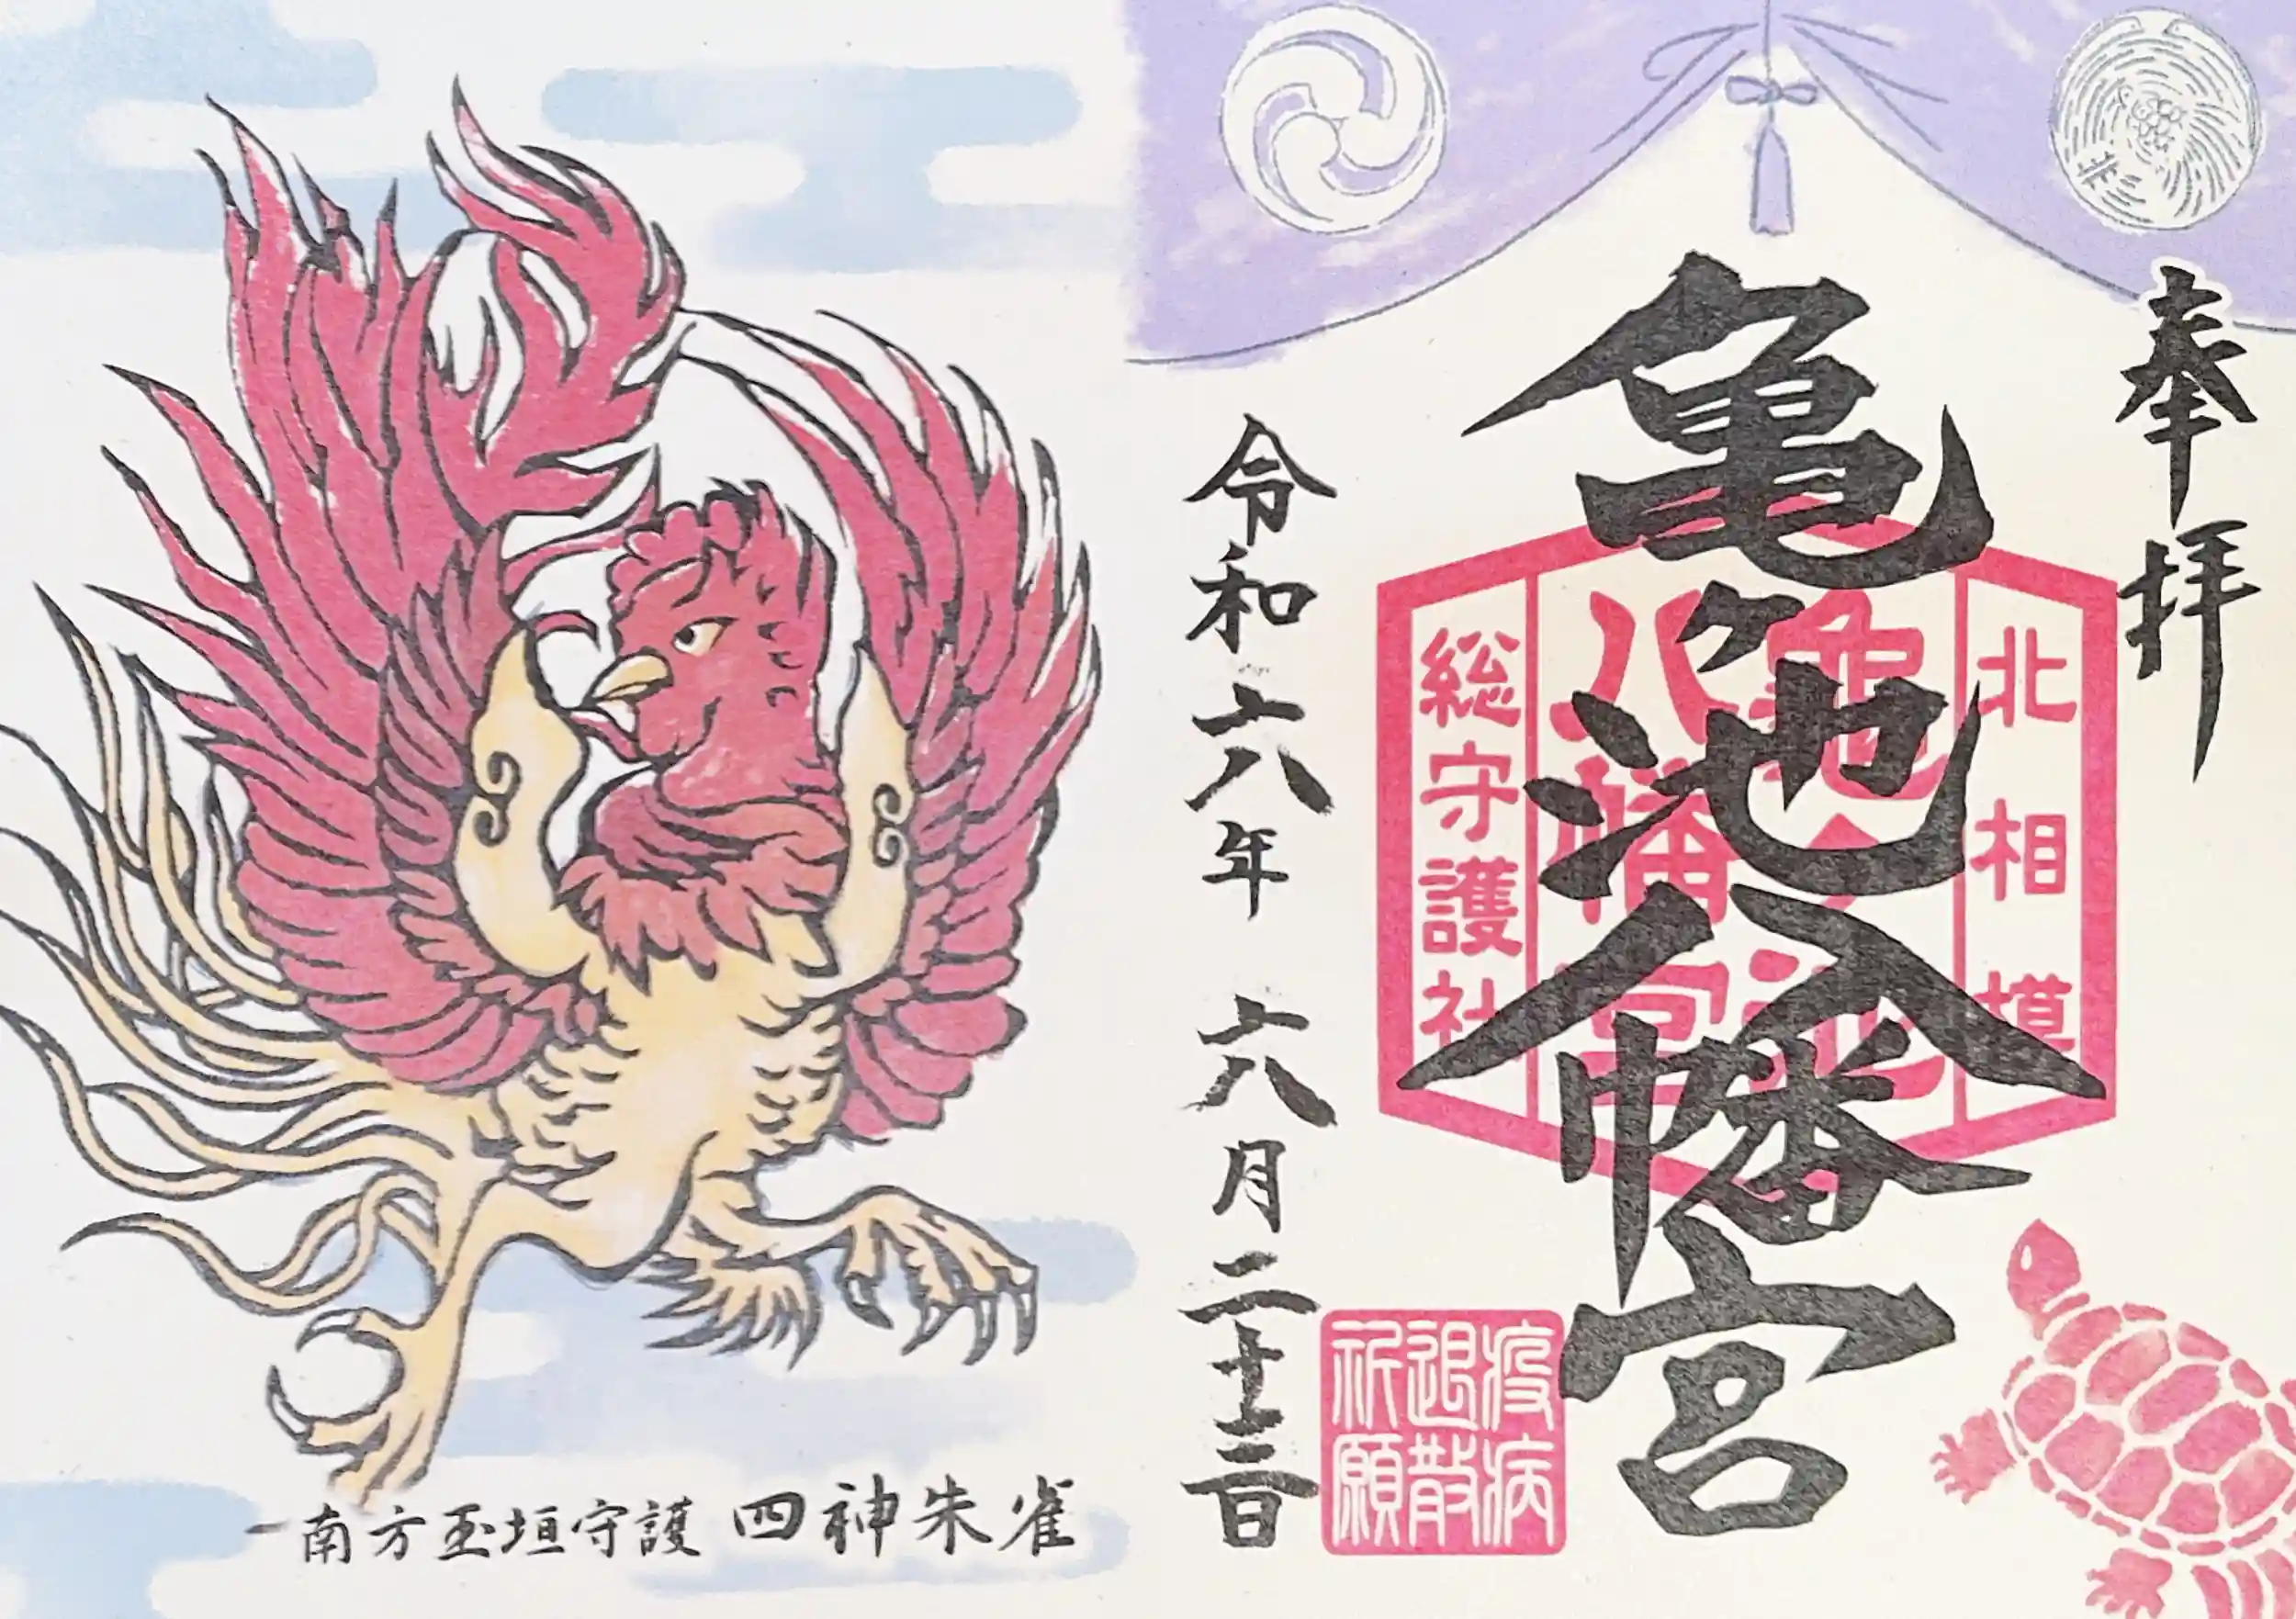 奉拝
亀ヶ池八幡宮
北相模
亀ヶ池
八幡宮
総守護社
疫病
退散
祈願
令和六年 六月二十三日
南方玉垣守護 四神朱雀